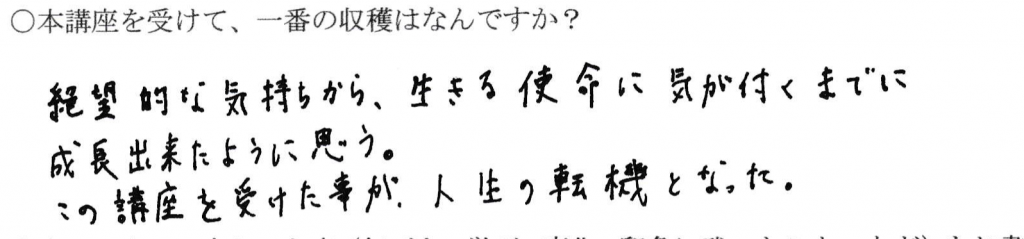 ○本講座を受けて、一番の収穫はなんですか？
絶望的な気持ちから、生きる使命に気が付くまでに
成長出来たように思う。
この講座を受けた事が、人生の転機となった。